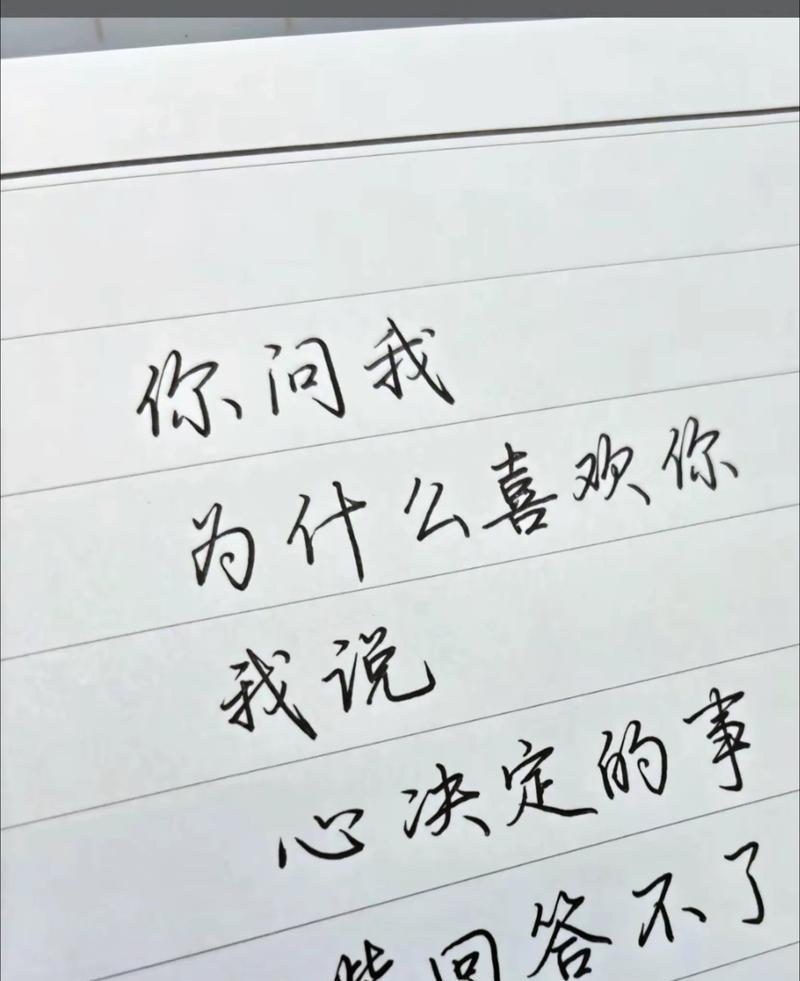 你问我
为什么喜欢你
我说
心决定的事
回答不了